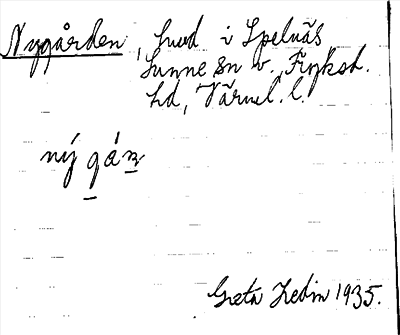 Nygården, hmd i Spelnäs
Sunne sn o. Fryksd.
hd, Värml. l.
ný gán
Greta Hedin 1935.